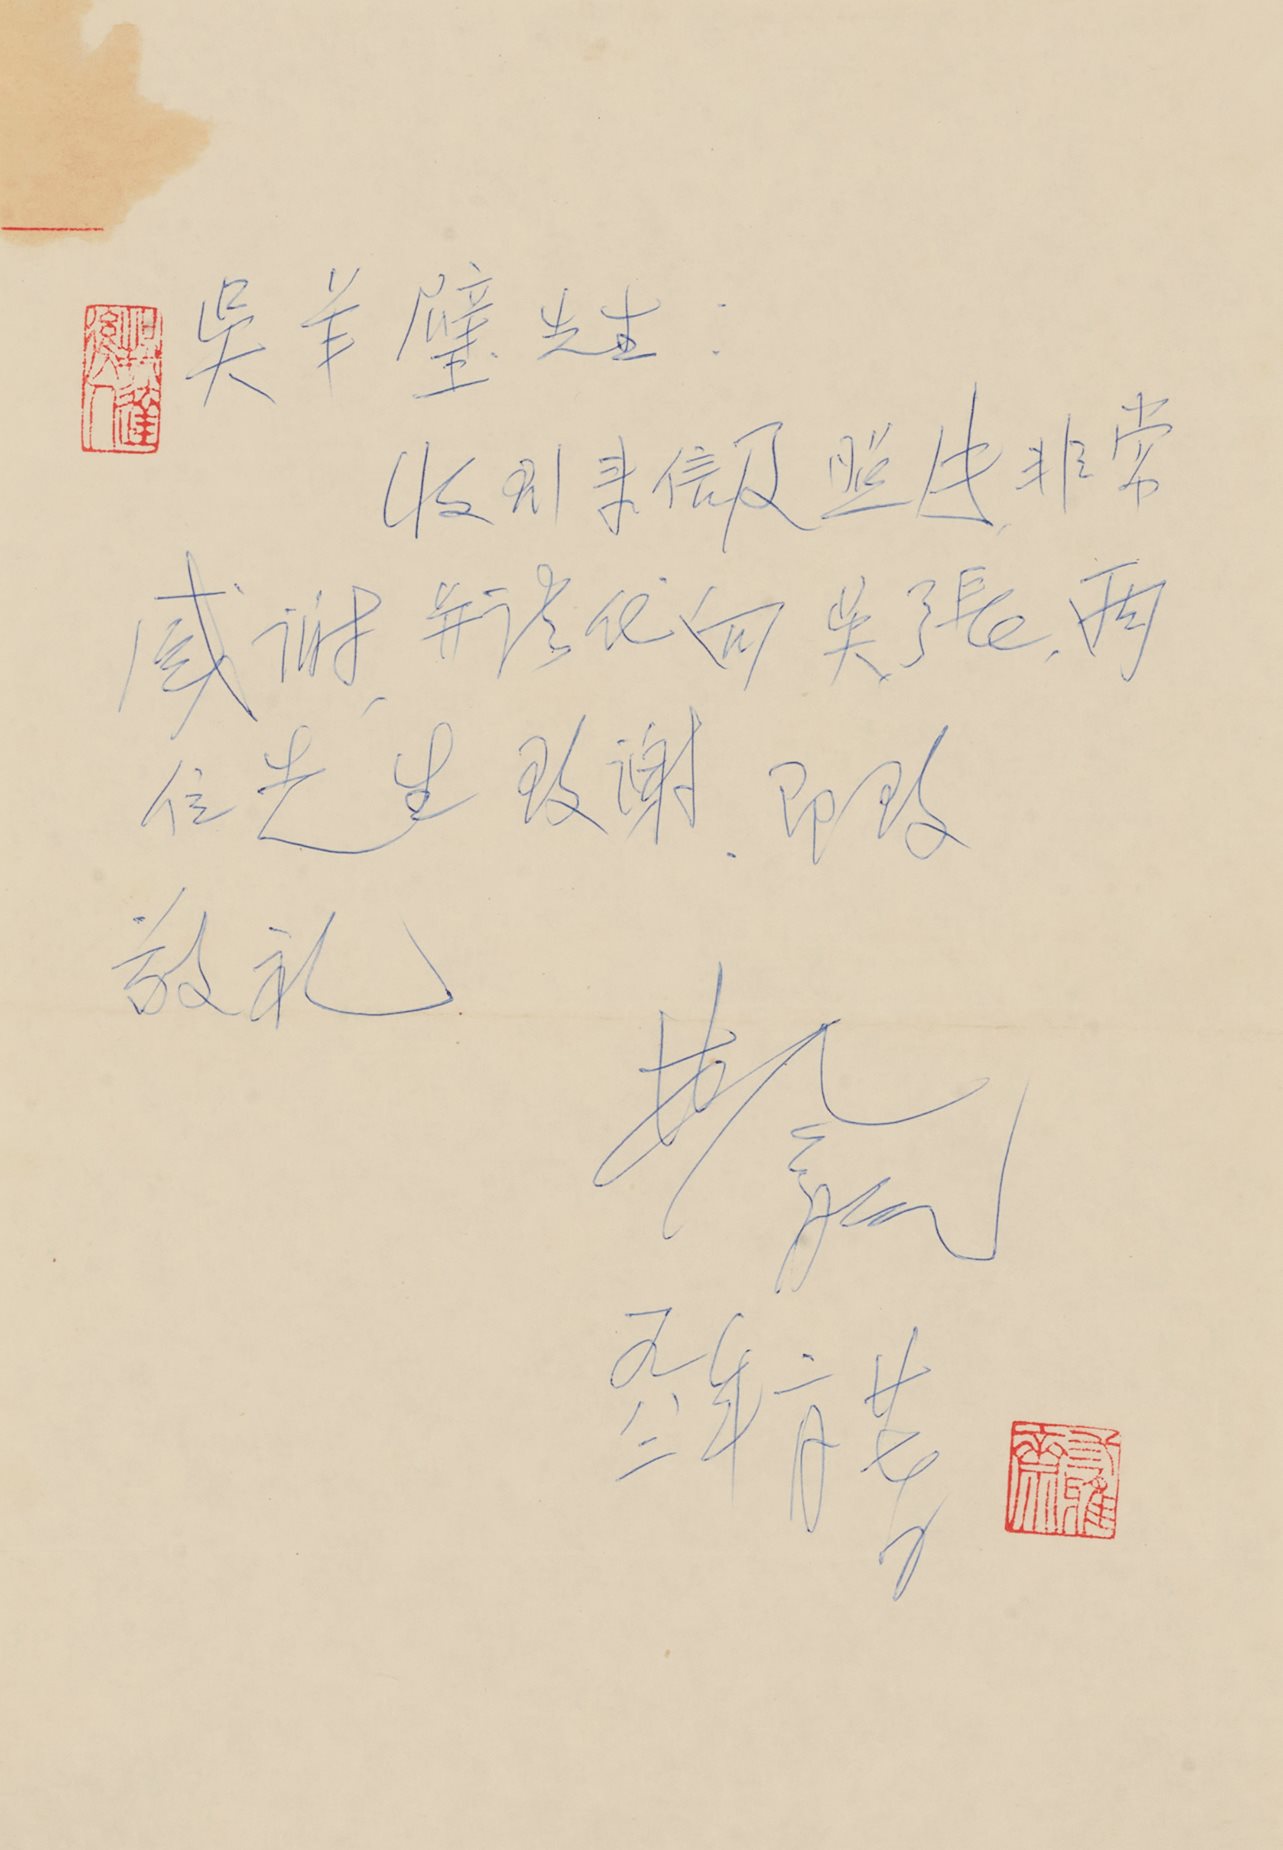 吴羊璧先生：
收到来信及照片，非常
感谢，并请代向吴、張、两
位先生致谢．即致
敬礼
一九八二年二月廿七日